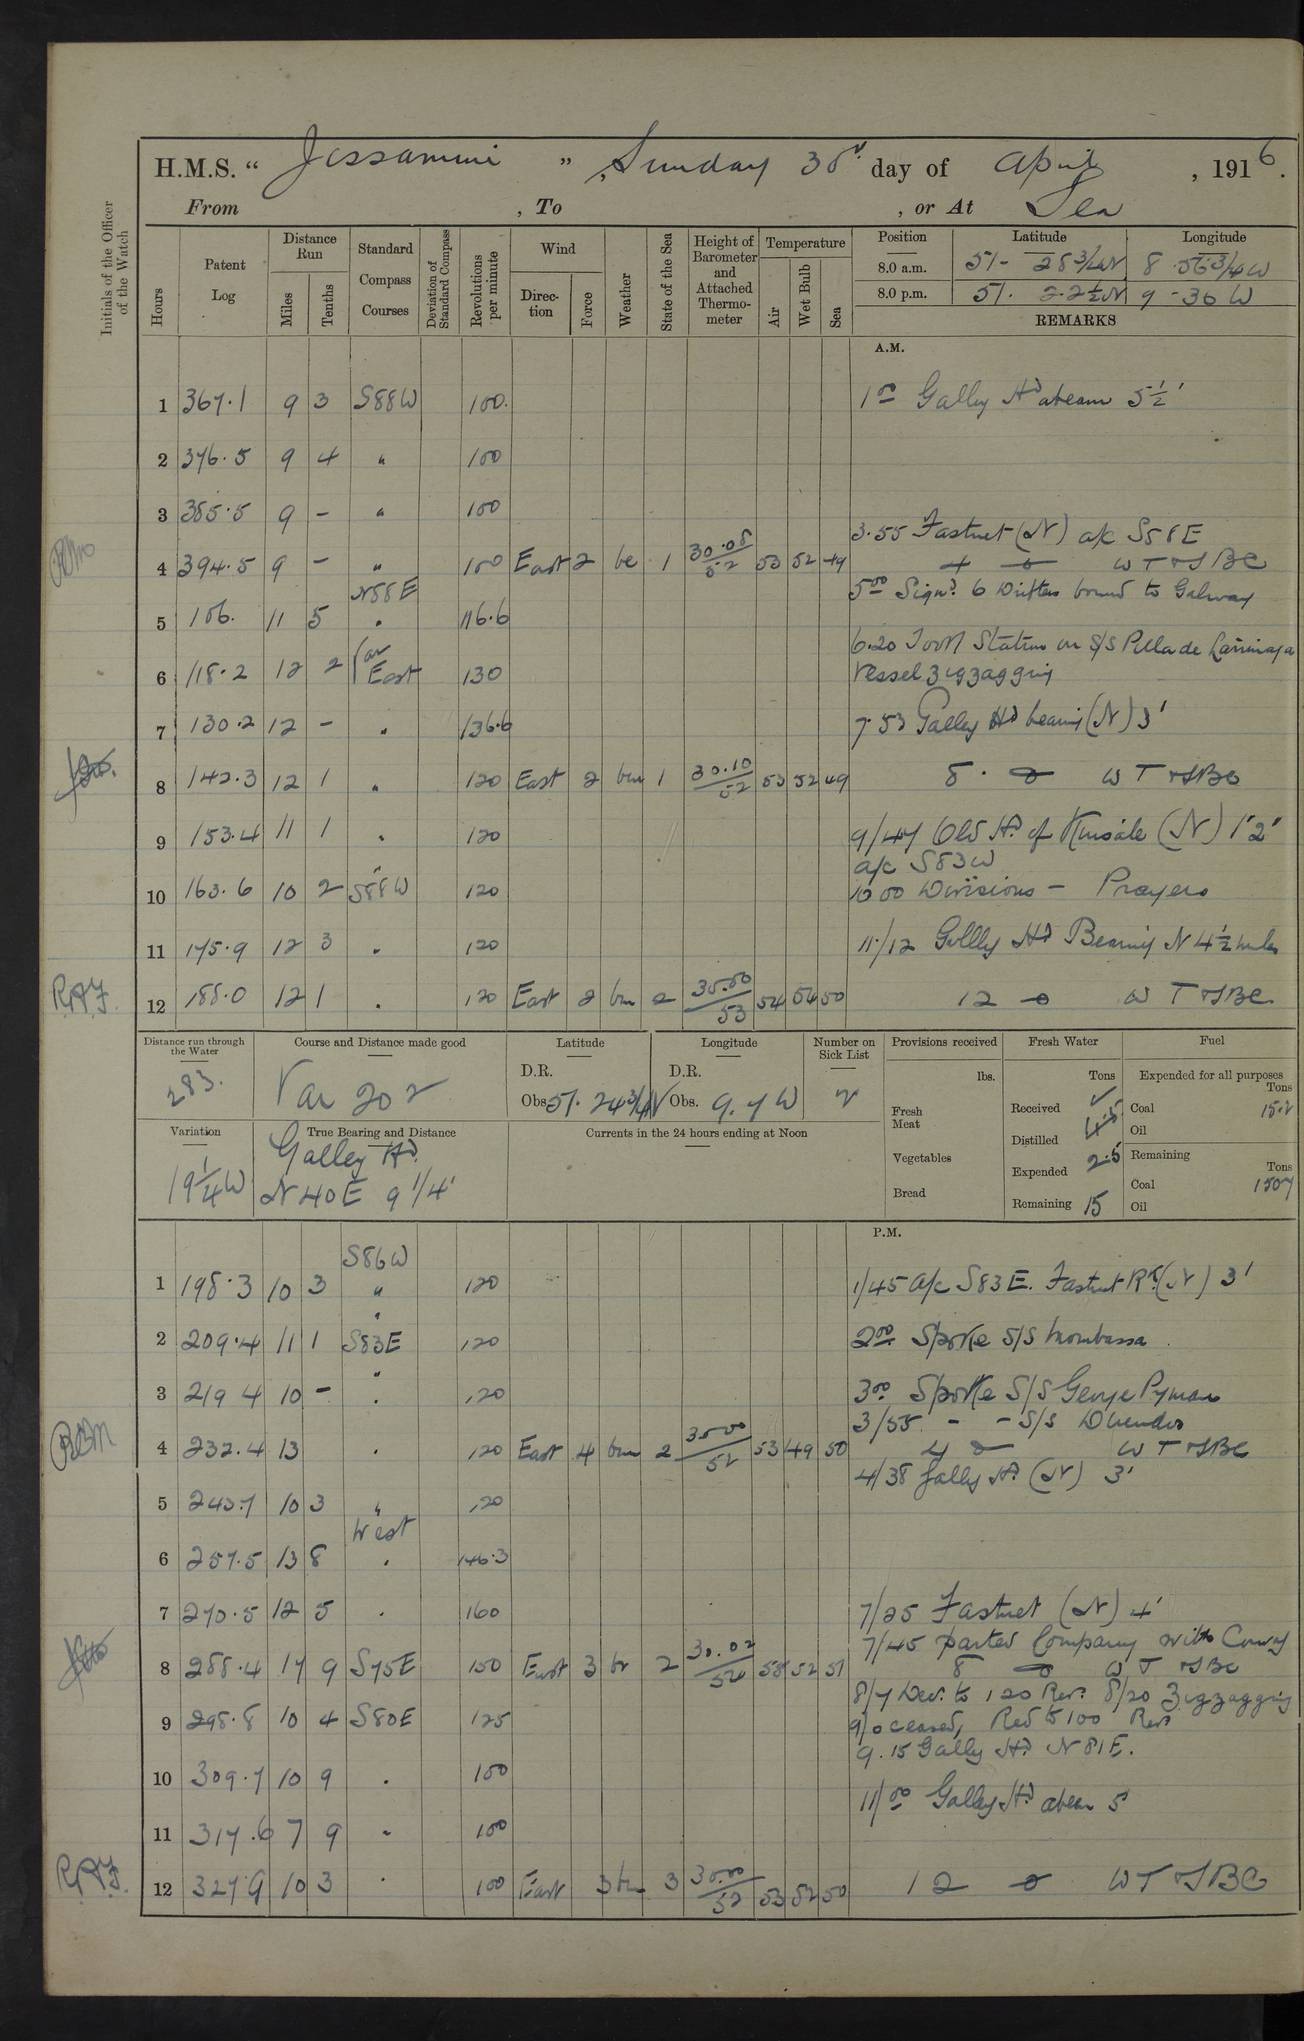 H.M.S. “ Jessamine ” , Sunday 30th day of April , 1916.
From , To , or At Sea
Initials of the Officer of the Watch
Hours
Patent Log
Distance Run
Miles
Tenths
Standard Compass Courses
Deviation of Standard Compass
Revolutions per minute
Wind
Direction
Force
Weather
State of the Sea
Height of Barometer and Attached Thermometer
Temperature
Air
Wet Bulb
Sea
Position Latitude Longitude
8.0 a.m. 51- 28 3/4 N 8 56 3/4 W
8.0 p.m. 51. 22 1/2 N 9 - 36 W
REMARKS
A.M.
1 367.1 9 3 S88W 100. 1 00 Galley Hd abeam 5 1/2'
2 376.5 9 4 " 100
3 385.5 9 - " 100
3.55 Fastnet (N) a/c S58E
4 394.5 9 - " 100 East 2 bc 1 30.08/52 53 52 49 4 0 W T & SBC
N88E
5 00 Sign'd 6 Drifters bound to Galway
5 106. 11 5 " 116.6
6.20 Took Station on S/S Pilar de Larrinaga
6 118.2 12 2 East 130 Vessel zigzagging
7 130.2 12 - " 136.6 7.53 Galley Hd bearing (N) 3'
8 142.3 12 1 " 120 East 2 bm 1 30.10/52 53 52 49 8. 0 W T & SBC
9 153.4 11 1 " 120 9/47 Old Hd of Kinsale (N) 1'2'
a/c S83W
10 163.6 10 2 S88W 120 10 00 Divisions - Prayers
11 175.9 12 3 " 120 11/12 Gallly Hd Bearing N 4 1/2 miles
R.A.F. 12 188.0 12 1 " 120 East 2 bm 2 30.00/53 54 54 50 12 0 W T & SBC
Distance run through the Water
283.
Course and Distance made good
Var 202
Latitude
D.R.
Obs. 51. 24 3/4 N
Longitude
D.R.
Obs. 9. 7 W
Number on Sick List
2
Provisions received
lbs.
Fresh Meat
Vegetables
Bread
Fresh Water
Tons
Received
Distilled
Expended 2.5
Remaining 15
Fuel
Expended for all purposes
Tons
Coal 15.2
Oil
Remaining
Tons
Coal 1507
Oil
Variation
19 1/4 W
True Bearing and Distance
Galley Hd.
N 40 E 9 1/4'
Currents in the 24 hours ending at Noon
P.M.
S86W
1 198.3 10 3 " 120 1/45 A/c S83E. Fastnet Rk (N) 3'
2 209.4 11 1 S83E 120 2 00 Spoke S/S Mombassa
3 219 4 10 - " 120 3 00 Spoke S/S George Pyman
3/55 - - S/S
4 232.4 13 " 120 East 4 bm 2 30.00/52 53 49 50 4 0 W T & SBC
4/38 Gally Hd. (N) 3'
5 243.7 10 3 " 120
West
6 257.5 13 8 " 146.3
7 270.5 12 5 " 160 7/25 Fastnet (N) 4'
7/45 parted Company with Convoy
8 288.4 17 9 S75E 150 East 3 bc 2 30.02/54 58 52 51 8 0 W T & SBC
8/7 Dec. to 120 Revs. 8/20 Zigzagging
9 298.8 10 4 S80E 125 9/0 ceased, Red to 100 Revs
9.15 Gally Hd N 81E.
10 309.7 10 9 " 100
11/00 Galley Hd abeam 5
11 317.6 7 9 " 100
R.A.F. 12 327 9 10 3 " 100 East 3 bm 3 30.00/52 53 52 50 12 0 W T & SBC